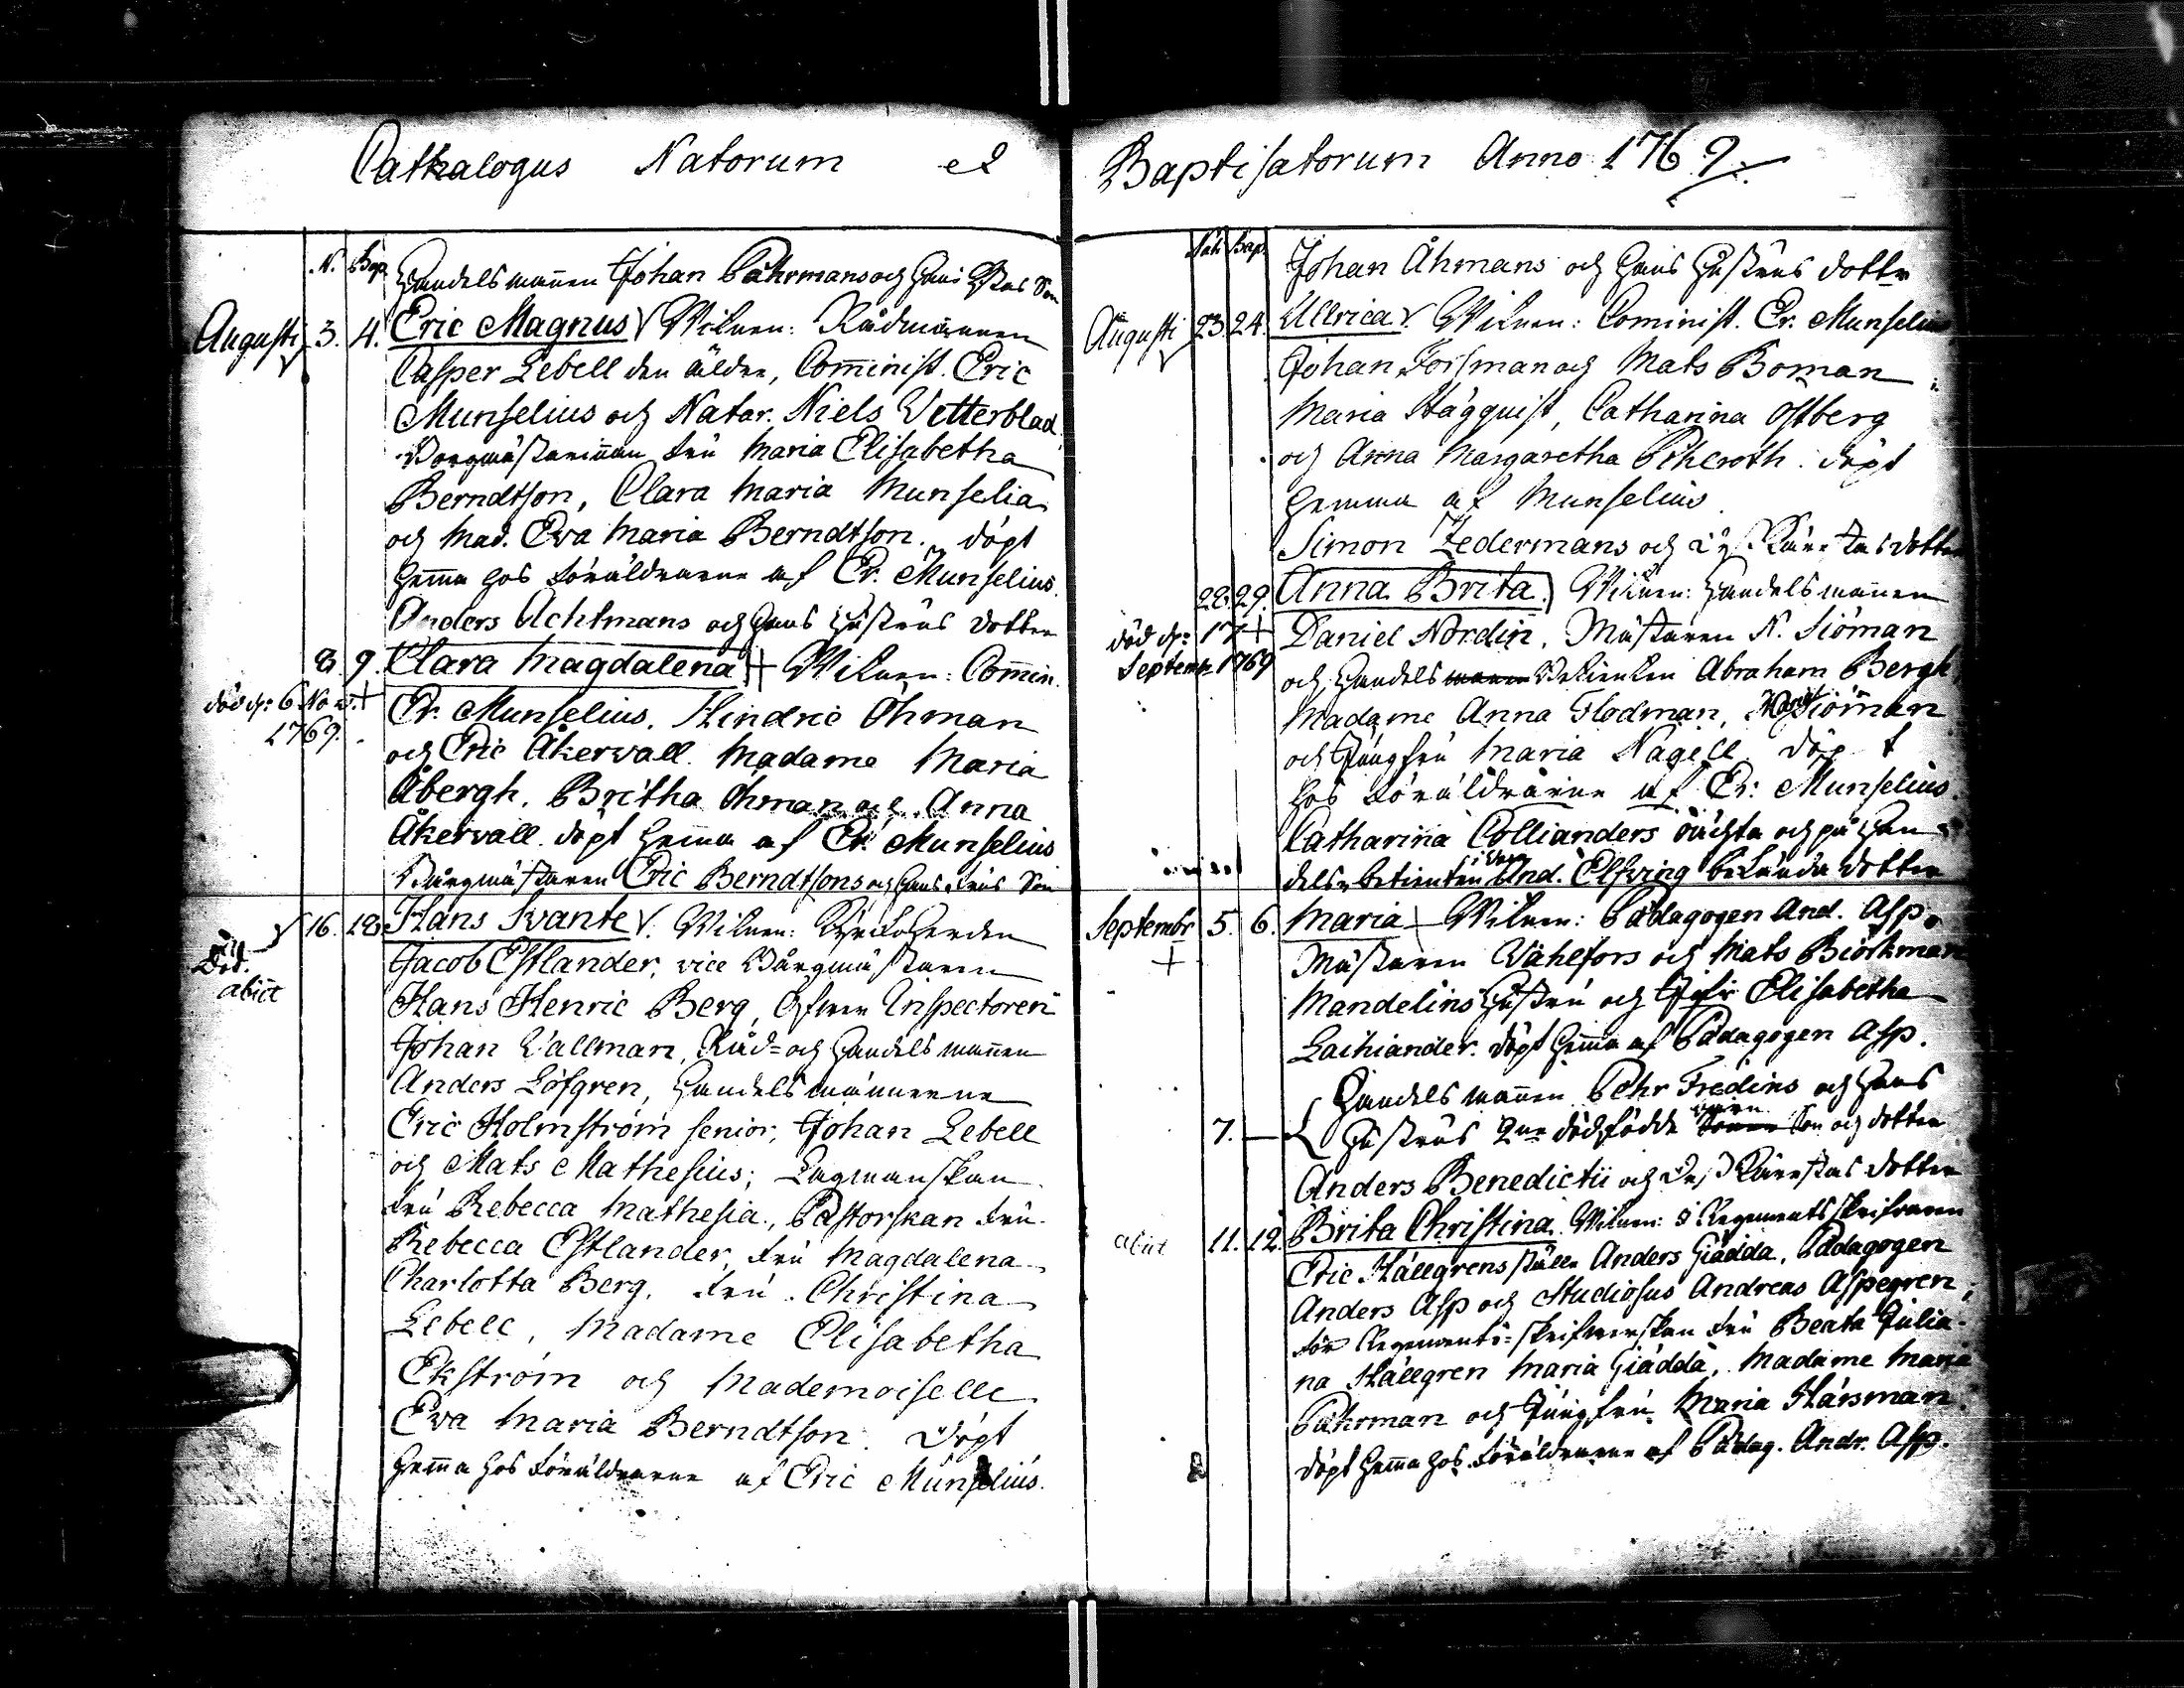 Cathalogus Natorum et
N. Bap.
Handelsmannen Johan Påhrmans och Hans H:stus Son
Augusti 3. 4. Eric Magnus Witnen: Rådmannen
Casper Lebell den äldre, Comminist. Eric
Munselius och Notar. Niels Wetterblad
Borgmästarinnan Fru Maria Elisabetha
Berndtson, Clara Maria Munselia
och Mad. Eva Maria Berndtson. döpt
hemma hos Föräldrarne af Er. Munselius.
Anders Achtmans och Hans Hustrus dotter
8. 9. Clara Magdalena + Witnen: Commin.
död d: 6 Nov. + Er. Munselius. Hindric Öhman
1769. och Eric Åkervall. Madame Maria
Åbergh, Britha Öhman och Anna
Åkervall. döpt hemma af Er. Munselius
Burgmästaren Eric Berndtsons och Hans Frus Son
16. 18. Hans Svante Witnen: Kyrkoherden
Död. Jacob Estlander, vice Burgmästaren
abiit Hans Henric Berg, Öfwer Inspectoren
Johan Wallman, Råd- och Handelsmannen
Anders Löfgren, Handelsmännerne
Eric Holmström senior, Johan Lebell
och Mats Mathesius; Lagmanskan
Fru Rebecca Mathesia, Pastorskan Fru
Rebecca Estlander, Fru Magdalena
Charlotta Berg, Fru Christina
Lebell, Madame Elisabetha
Ekström och Mademoiselle
Eva Maria Berndtson. döpt
hemma hos Föräldrarne af Eric Munselius.
Baptisatorum Anno 1769.
Nat. Bap.
Johan Åhmans och Hans Hustrus dotter
Augusti 23. 24. Ullrica Witnen: Cominist. Er. Munselius
Johan Forsman och Mats Boman
Maria Hägquist, Catharina Östberg
och Anna Margaretha Pihlroth. döpt
hemma af Munselius.
Simon Zedermans och dess Käristas dotter
28. 29. Anna Brita Witnen: Handelsmannen
död d: 17 + Daniel Nordin, Mästaren N. Siöman
Septemb. 1769 och Handels Betienten Abraham Bergh,
Madame Anna Flodman, Siöman
och Jungfru Maria Nagell döpt
hos Föräldrarne af Er: Munselius.
Catharina Collianders oächta och på Han-
dels betienten And. Elfving bekända dotter
Septembr 5. 6. Maria Witnen: Pädagogen And. Asp,
+ Mästaren Wahlfors och Mats Biörkman
Mandelins Hustru och Jgfr Elisabetha
Laihiander. döpt hemma af Pädagogen Asp.
Handelsmannen Pehr Fredins och Hans
7. — Hustrus 2ne dödfödde barn Son och dotter
Anders Benedictii och dess Käristas dotter
abiit 11. 12. Brita Christina. Witnen: i Regementsskrifvaren
Eric Hällgrens ställe Anders Giädda, Pädagogen
Anders Asp och Studiosus Andreas Aspegren;
för Regements-skrifverskan Fru Beata Julia-
na Hällgren Maria Giädda, Madame Maria
Påhrman och Jungfru Maria Hårsman.
döpt hemma hos Föräldrarne af Pädag. Andr. Asp.